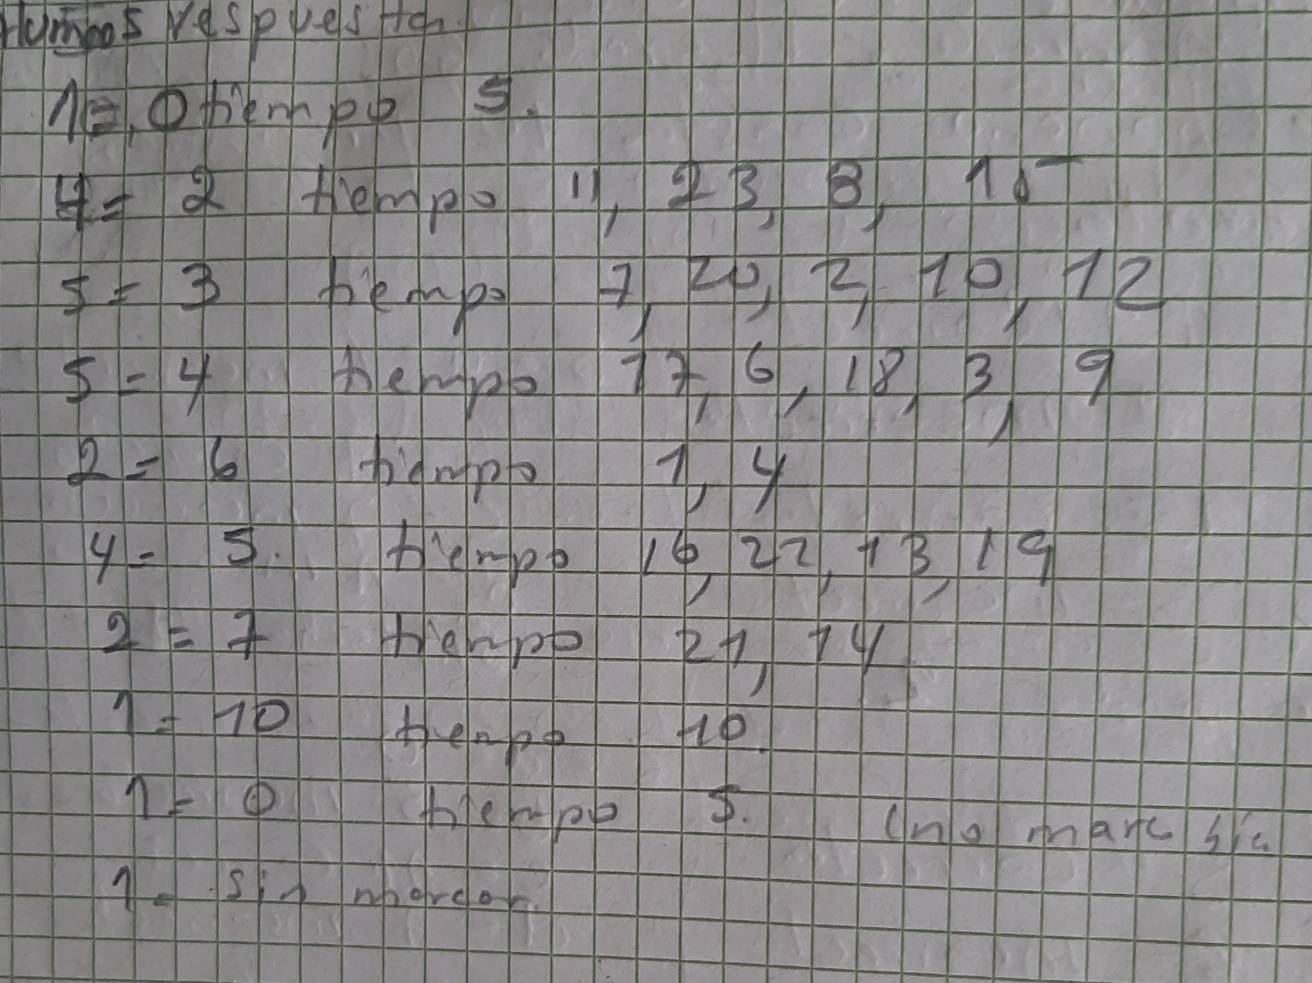 respuesta.
1=, 0 tiempo 5.
4= 2 tiempo 11, 23, 8, 15
5= 3 tiempo 7, 20, 2, 10, 12
5=4 tiempo 17, 6, 18, 3, 9
2= 6 tiempo 1, 4
4= 5. tiempo 16, 22, 13, 19
2 = 7 tiempo 21, 14
1= 10 tiempo 10.
1= 0 tiempo 5. (no marc
1= sin marcar.